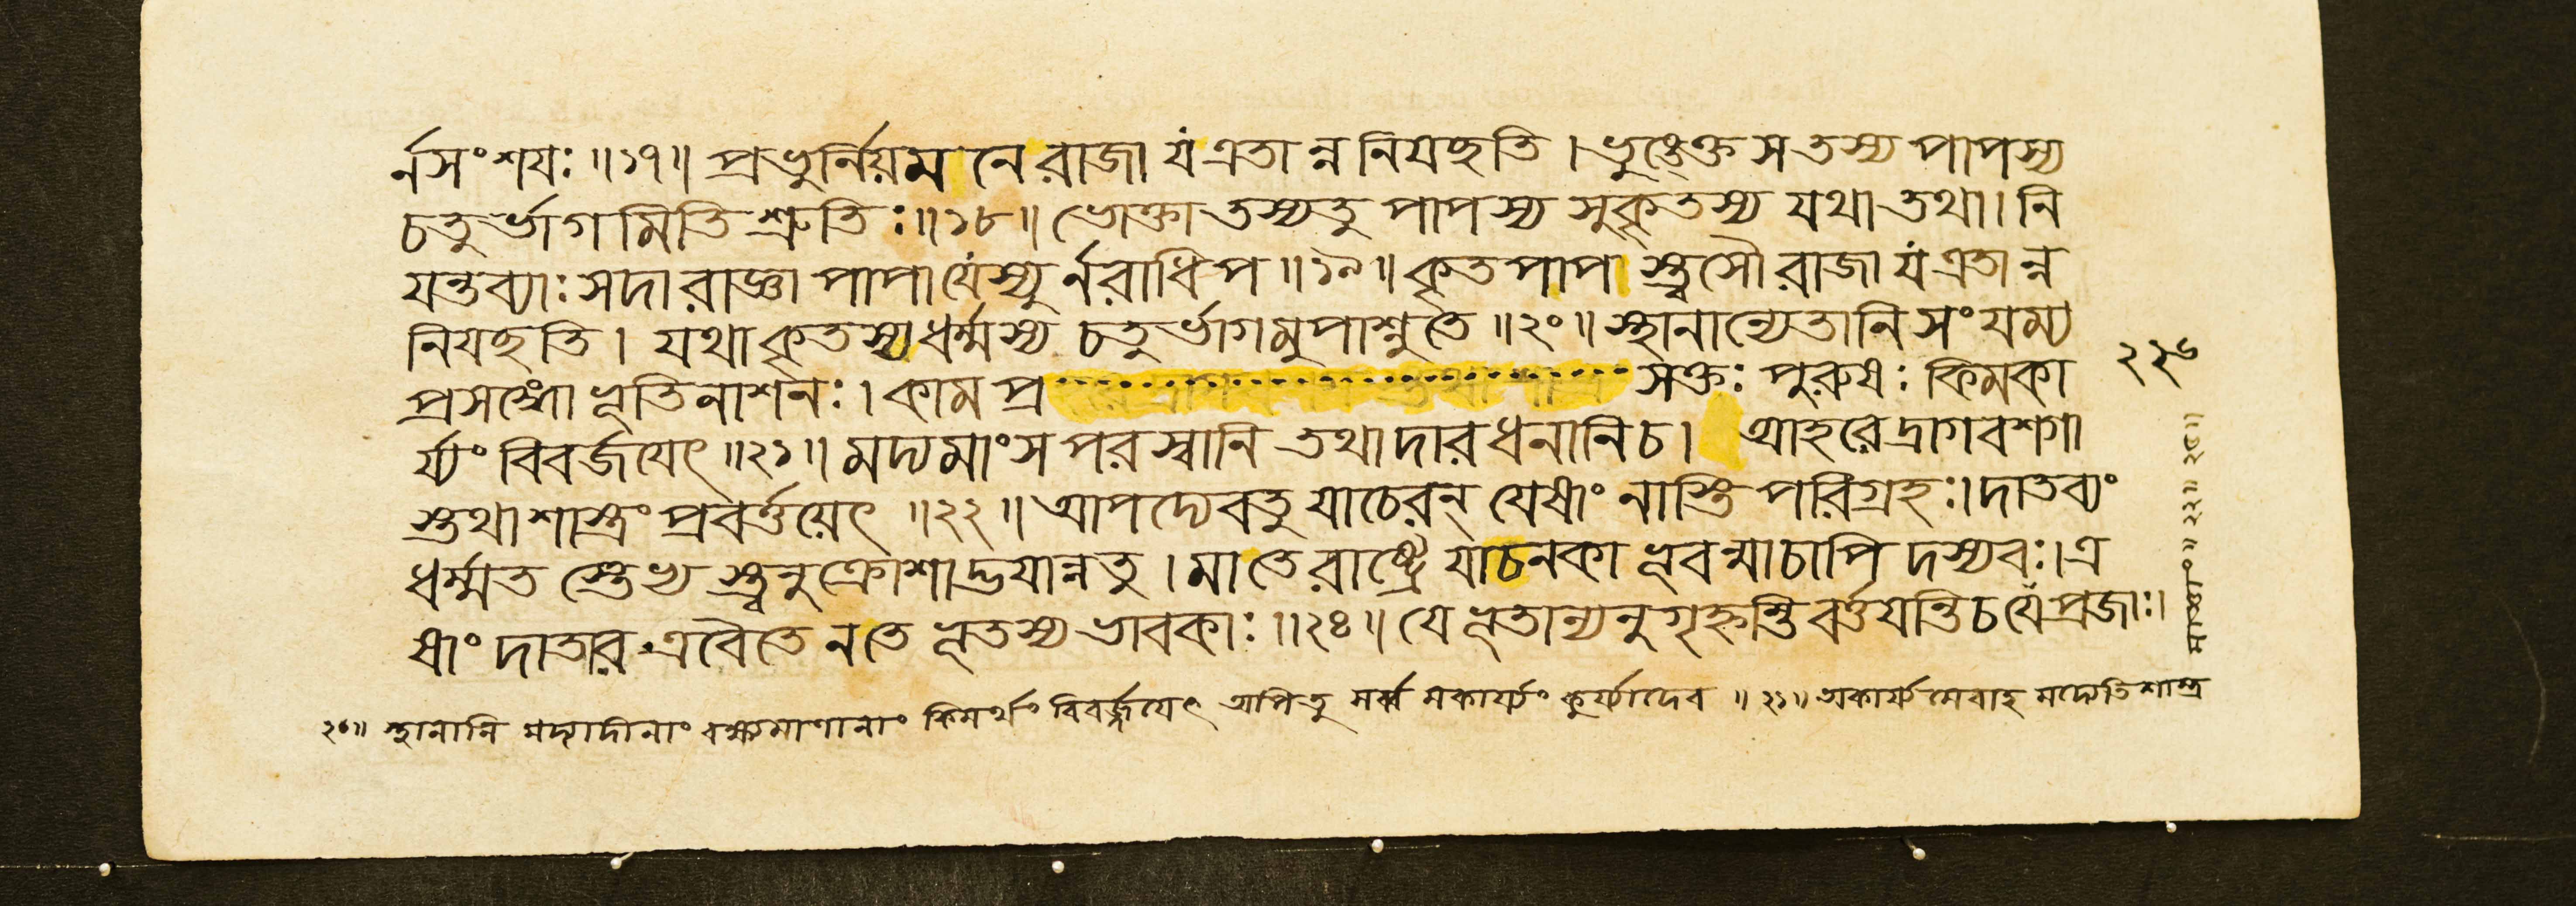 র্নসংশযঃ ॥১৭॥ প্রভুর্নিয়ম নে রাজা যং এতা ন্ন নিযছতি । ভুঙেক্ত স তস্য পাপস্য
চতুর্ভাগ মিতি শ্রুতিঃ ॥১৮॥ ভোক্তা তস্যতু পাপস্য সুকৃতস্য যথা তথা । নি
যন্তব্যাঃ সদা রাজ্ঞা পাপা যেংস্যু র্নরাধিপ ॥১৯॥ কৃত পাপ স্ত্বসৌ রাজা যং এতা ন্ন
নিযছতি । যথা কৃতস্য ধর্ম্মস্য চতুর্ভাগমুপাশ্নুতে ॥২০॥ স্থানান্যেতানি সংযম্য
প্রসঙ্গো ভূতিনাশনঃ । কাম প্র সক্তঃ পুরুষঃ কিমকা
র্য্যং বিবর্জযেৎ ॥২১॥ মদ্যমাংস পরস্বানি তথা দার ধনানি চ । আহরেদ্রাগবশগা
স্তথা শাস্ত্রং প্রবর্ত্তয়েৎ ॥২২॥ আপদ্যেবতু যাচেরন্ যেষাং নাস্তি পরিগ্রহঃ । দাতব্যং
ধর্ম্মত স্তেভ্য স্ত্বনুক্রোশাদ্ভযান্নতু । মা তে রাষ্ট্রে যাচনকা ভূবন্মাচাপি দস্যবঃ । এ
ষাং দাতার এবৈতে নতে ভূতস্য ভাবকাঃ ॥২৪॥ যে ভূতান্যনুগৃহ্নন্তি বর্তযন্তি চ যেং প্রজাঃ ।
২২৬
২০॥ স্থানানি মদ্যাদীনাং বক্ষ্যমাণানাং কিমর্থং বিবর্জ্জযেৎ অপিতু সর্ব্ব মকার্য্যং কুর্য্যাদেব ॥ ২১॥ অকার্য্য মেবাহ মদ্যেতি শাস্ত্র